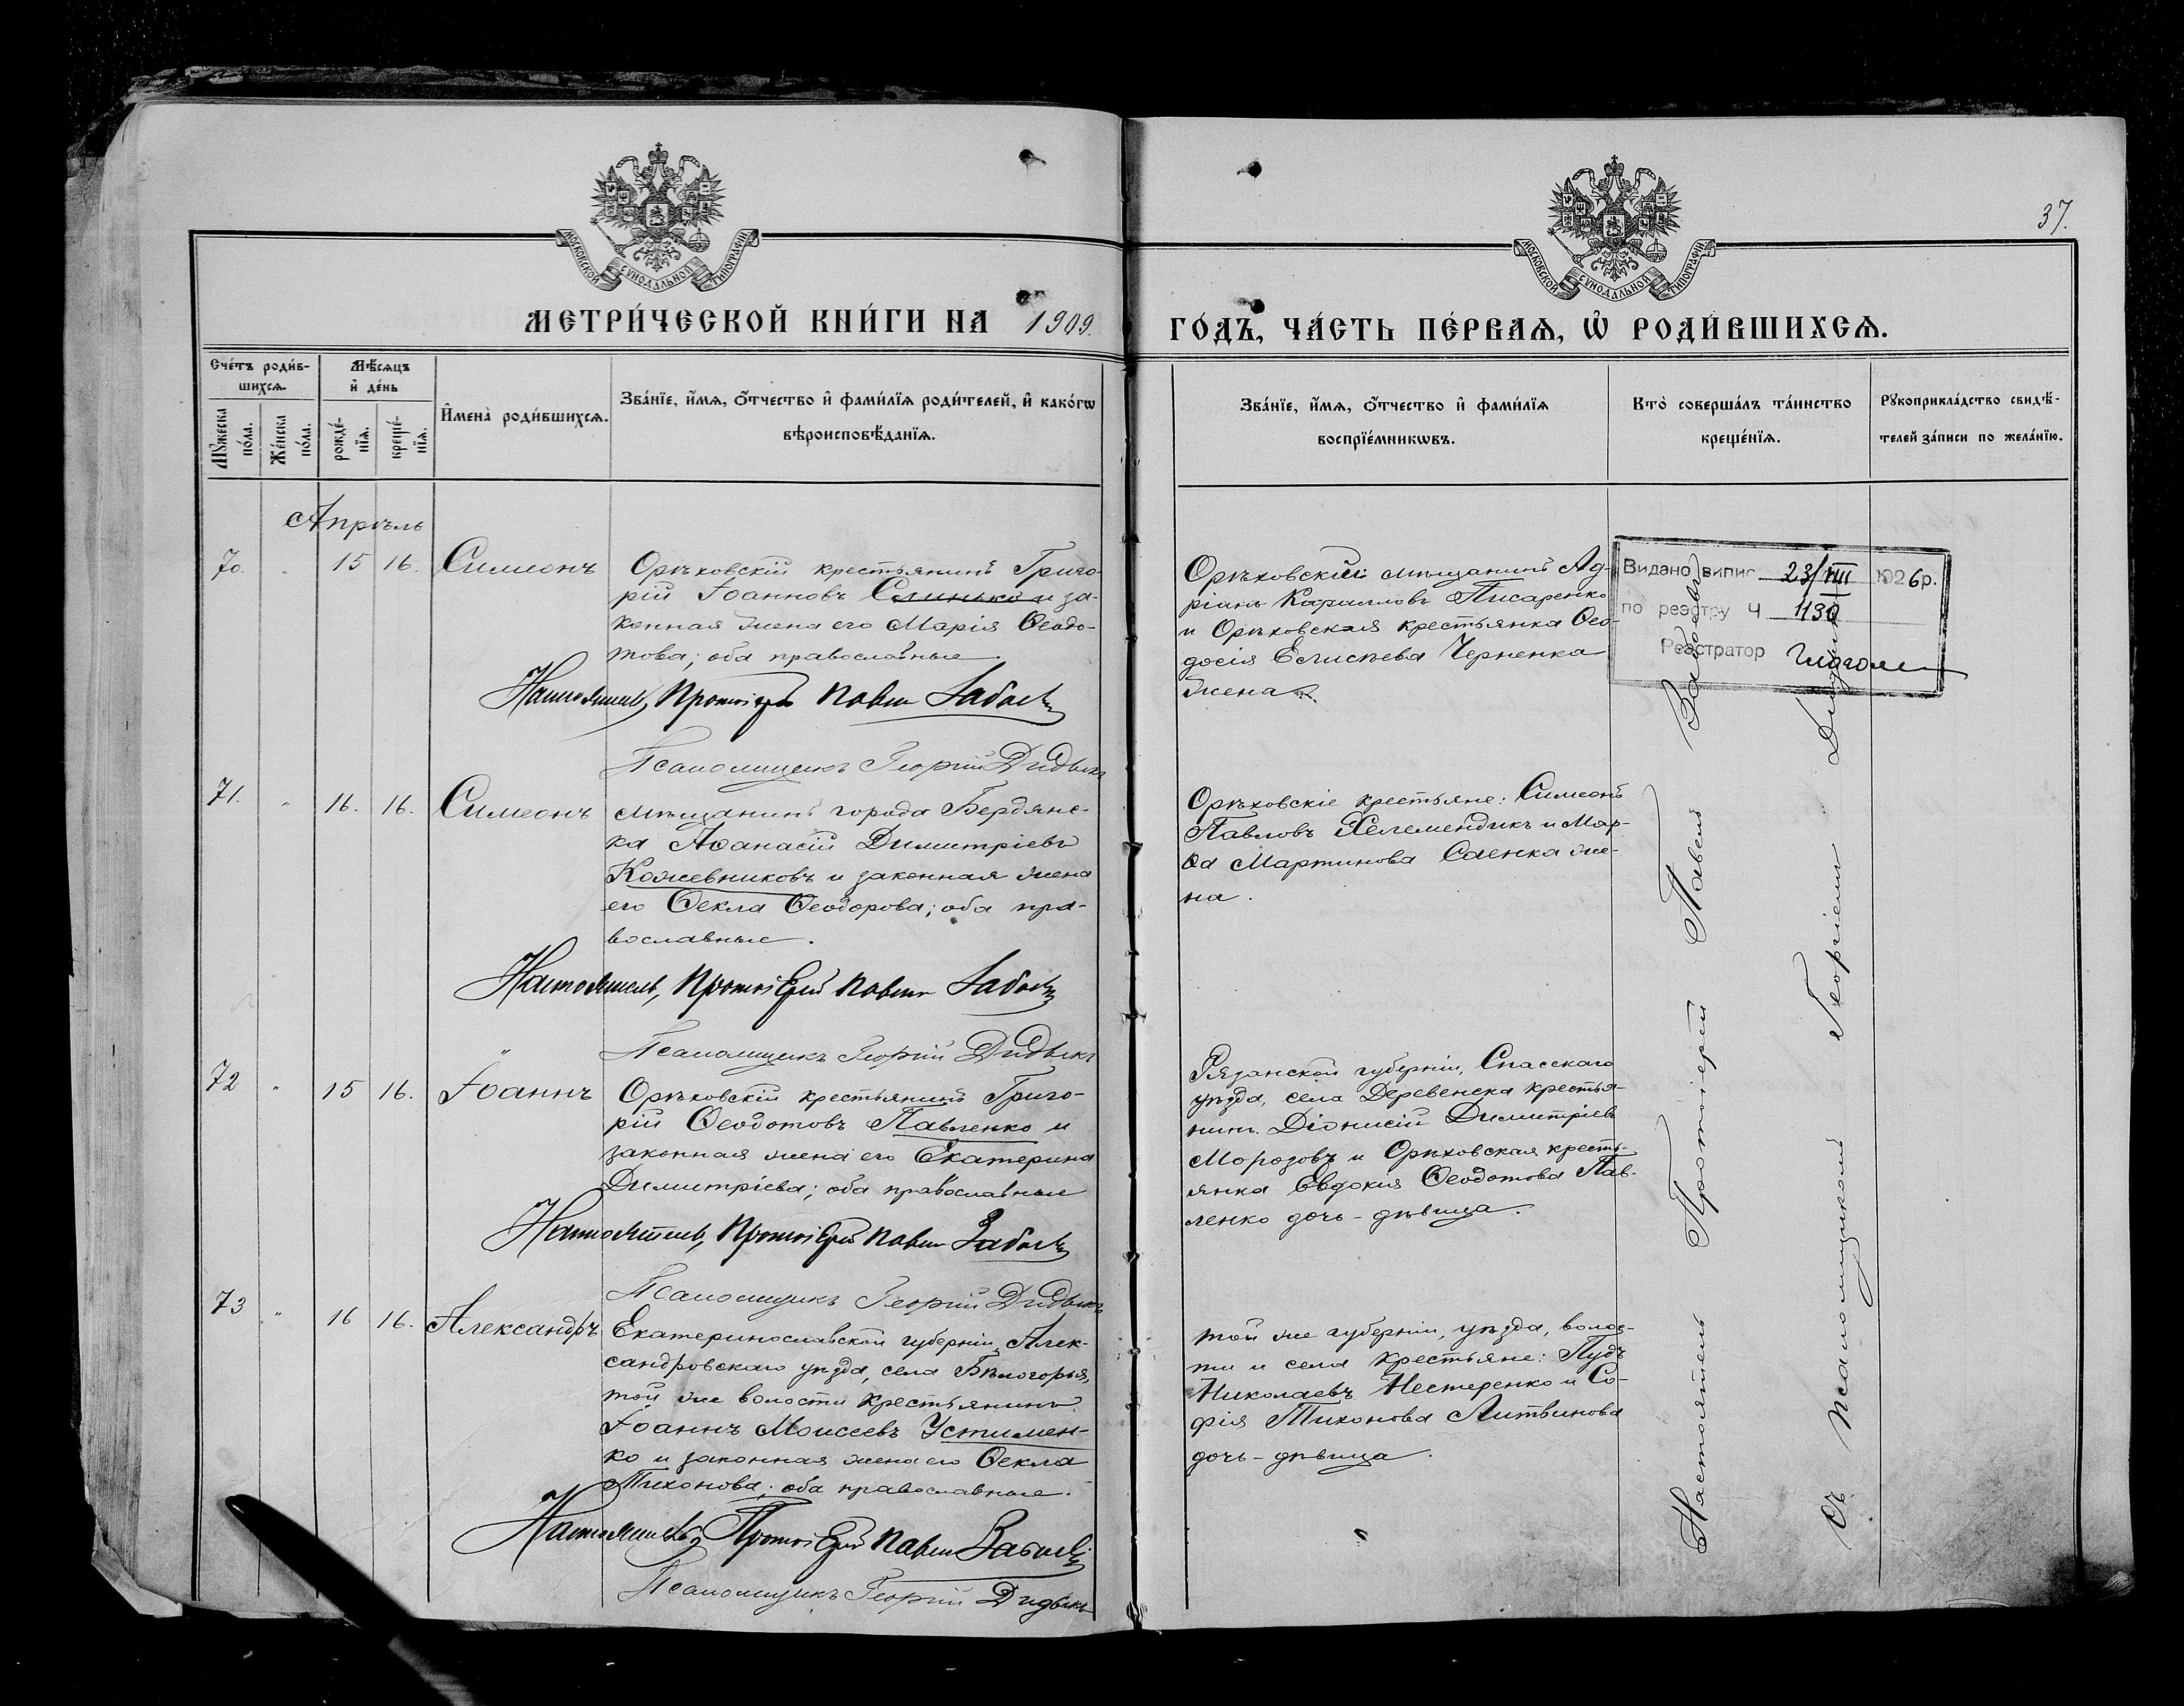 37.
МОСКОВСКОЙ СУНОДАЛЬНОЙ ТИПОГРАФІИ
МОСКОВСКОЙ СУНОДАЛЬНОЙ ТИПОГРАФІИ
МЕТРИ́ЧЕСКОЙ КНИ́ГИ НА 1909.
ГО́ДЪ, ЧА́СТЬ ПЕ́РВАѦ, Ѡ҆ РОДИ́ВШИХСѦ.
Сче́тъ роди́в-
шихсѧ.
Мѣ́сѧцъ
и҆ де́нь
Мꙋ́жеска
по́ла.
Же́нска
по́ла.
рожде́-
нїѧ.
креще́-
нїѧ.
И҆мена̀ роди́вшихсѧ.
Зва́нїе, и҆́мѧ, ѻ҆́тчество и҆ фами́лїѧ роди́телей, и҆ како́гѡ
вѣроисповѣ́данїѧ.
Зва́нїе, и҆́мѧ, ѻ҆́тчество и҆ фами́лїѧ
воспрїе́мникѡвъ.
Кто̀ соверша́лъ та́инство
креще́нїѧ.
Рꙋкоприкла́дство свидѣ́-
телей за́писи по жела́нїю.
Апрѣль
70. " 15 16. Симеонъ
Орѣховскій крестьянинъ Григо-
рій Іоанновъ Слинько и за-
конная жена его Марія Ѳеодо-
това; оба православные
Настоятель, Протоіерей Павелъ
Псаломщикъ Георгій Дидыкъ
Орѣховскій мѣщанинъ Ад-
ріанъ Кириллов Писаренко
и Орѣховская крестьянка Ѳео-
досія Елисѣева Черненка
жена.
Видано випис 23/VIII 1926р.
по реэстру Ч 1130
Реэстратор
71. " 16. 16. Симеонъ
мѣщанинъ города Бердянс-
ка Аѳанасій Димитріевъ
Кожевниковъ и законная жена
его Ѳекла Ѳеодорова; оба пра-
вославные.
Настоятель, Протоіерей Павелъ
Псаломщикъ Георгій Дидыкъ
Орѣховскіе крестьяне: Симеонъ
Павловъ Желемендикъ и Мар-
ѳа Мартинова Саенка же-
на.
72 " 15 16. Іоаннъ
Орѣховскій крестьянинъ Григо-
рій Ѳеодотовъ Павленко и
законная жена его Екатерина
Димитріева; оба православные
Настоятель, Протоіерей Павелъ
Псаломщикъ Георгій Дидыкъ
Рязанской губерніи, Спасскаго
уѣзда, села Деревенска крестья-
нинъ. Діонисій Димитріевъ
Морозовъ и Орѣховская кресть-
янка Евдокія Ѳеодотова Пав-
ленко дочь-дѣвица.
73 " 16 16. Александръ
Екатеринославской губерніи, Алек-
сандровскаго уѣзда, села Бѣлогорья,
той же волости крестьянинъ
Іоаннъ Моисеевъ Устимен-
ко и законная жена его Ѳекла
Тихонова; оба православные.
Настоятель, Протоіерей Павелъ
Псаломщикъ Георгій Дидыкъ
той же губерніи, уѣзда, волос-
ти и села крестьяне: Пудъ
Николаевъ Нестеренко и Со-
фія Тихонова Литвинова
дочь-дѣвица.
Настоятель Протоіерей Павелъ
Съ Псаломщикомъ Георгіемъ